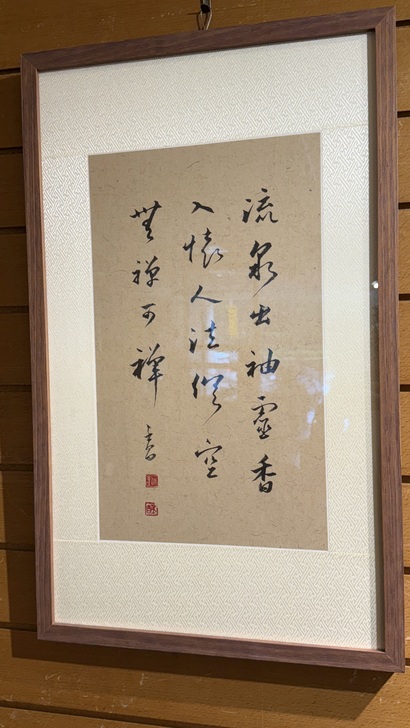 流泉出袖靈香
入懷人法俱空
無禪可禪